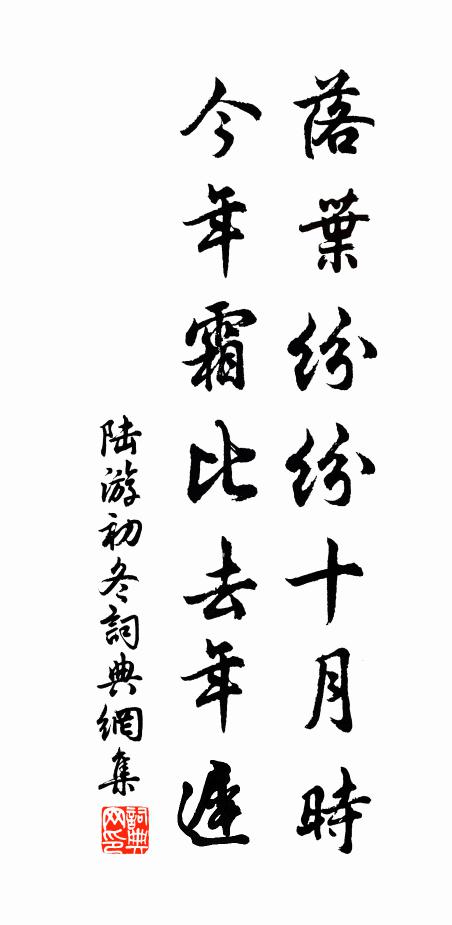 落葉紛紛十月時
今年霜比去年遲
陆游初冬詞典網集
詞典网印